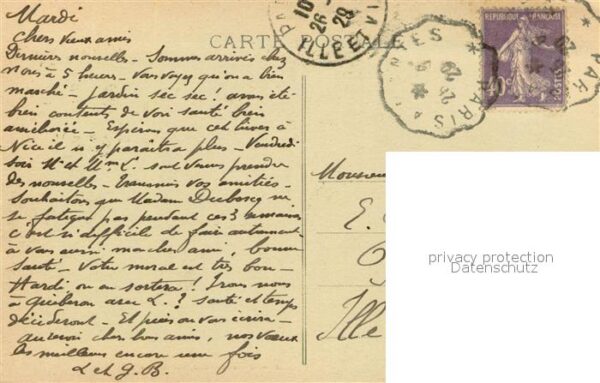 Mardi
Chers vieux amis
Dernières nouvelles – Sommes arrivés chez
nous à 5 heures – vous voyez qu'on a bien
marché – jardin sec sec ! avons été
bien contents de voir santé bien
améliorée – Espérons que cet hiver à
Nice il n'y paraîtra plus – Vendredi
soir Mr et Mme L. sont venus prendre
des nouvelles – transmis vos amitiés –
Souhaitons que Madame Duboscq ne
se fatigue pas pendant ces 3 semaines
c'est si difficile de faire autrement
à vous aussi mon cher ami, bonne
santé – Votre moral est très bon –
Hardi, on en sortira ! Irons nous
à Quiberon avec L. ? santé et temps
décideront – Et puis on vous écrira –
au revoir chers bons amis, nos vœux
les meilleurs encore une fois
L et G. B.
CARTE POSTALE
10
26
29
ILLE ET VI
RÉPUBLIQUE FRANÇAISE
POSTES
40c
PARIS A
ES
29
PAR
Monsieur
E.
Ille
privacy protection
Datenschutz